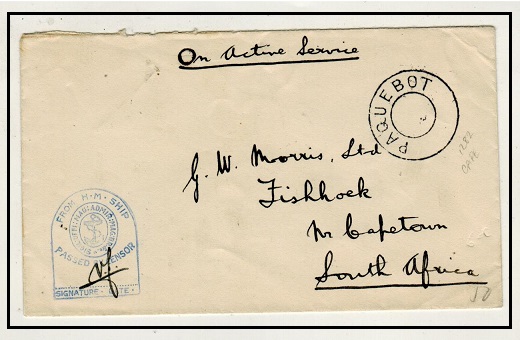 On Active Service
PAQUEBOT
G. W. Morris, Ltd
Fishhoek
Nr Capetown
South Africa
FROM H·M·SHIP
PASSED CENSOR
SIGNATURE - DATE -